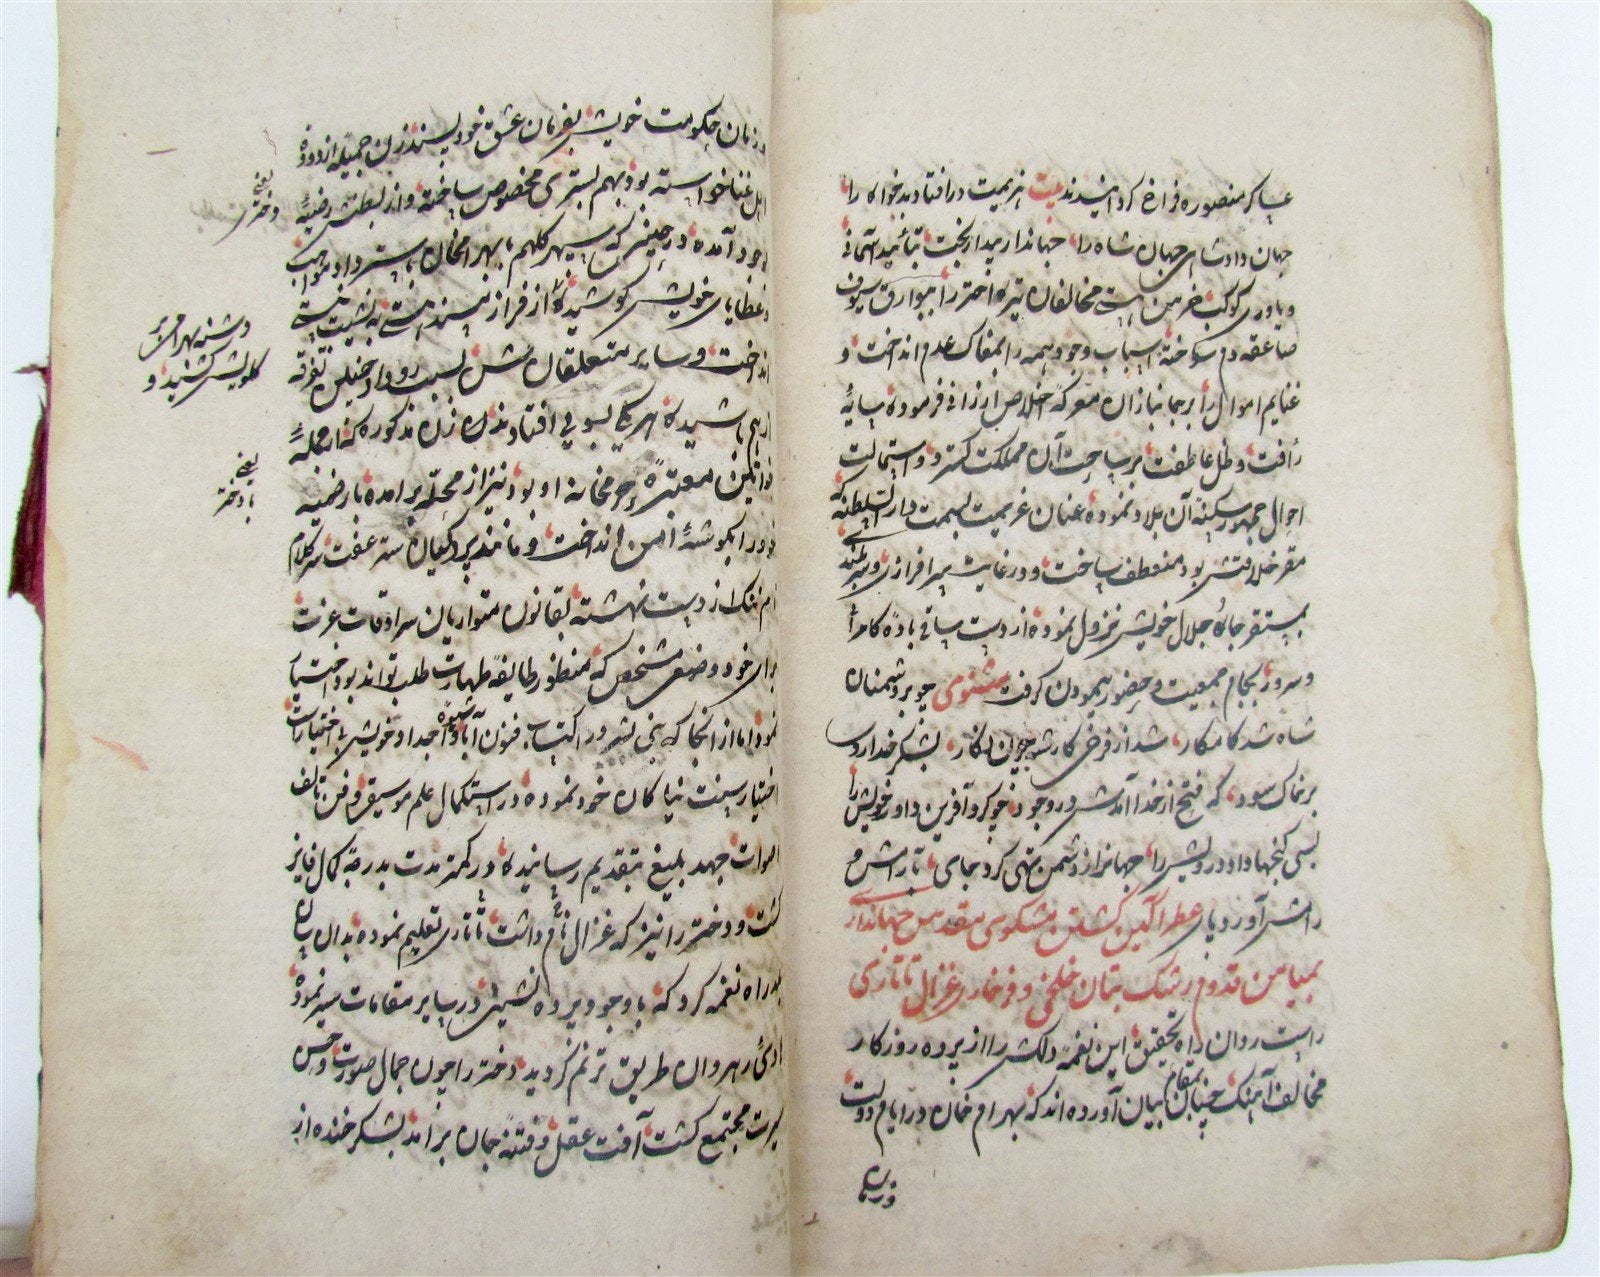 عساکر منصوره فراخ کردانیدند بیت هزیمت در افتاد بدخواه را
جهان داد شاهی جهان شاه را جهاندار بیدار بخت بتائید آسمانی
و یاوری کوکب خرمن هستی مخالفان تیره اختر را ببوارق سیوف
صاعقه دم سوخته اسباب وجود همه را بمغاک عدم انداخت و
غنایم اموال را بر جانبازان معرکه اخلاص ارزانی فرموده سایهٔ
رأفت و ظل عاطفت بر ساحت آن مملکت کسترد و استمالت
احوال جمهور سکنهٔ آن بلاد نموده عنان عزیمت بسمت دار السلطنه که
مقر خلافتش بود منعطف ساخت و در غایت سرافرازی و سربلندی
بمستقر جاه و جلال خویش نزول نموده از دست ساقی باده کامرا
و سرور بجام جمعیت و حضور پیمودن کرفت مثنوی چو بر دشمنان
شاه شد کامکار شد از فرخی کارش چون نکار بشکر خدا روی
بر خاک سود که فتح از خدا آمدش در وجود چو کرد آفرین داور خویش را
بسی کنجها داد درویش را جهان را ز دشمن تهی کرد جای بآرامش و
رامش آورد پای عطر آکین کشتن مشکوی مقدس جهانداری
بمیامن قدوم رشک بتان خلخی و فرخار غزال تاتاری
راست روان راه تحقیق این نغمه دلکش را از پرده روزکار
مخالف آهنک چنین بمقام بیان آورده اند که بهرام خان در ایام دولت
و زمان
و زمان حکومت خویش بفرمان عشق خود پسند زن جمیله از دودهٔ
اهل غنا خواسته بود بهم بستری مخصوص ساخته و از بطنش رضیهٔ
بوجود آمده در حینی که سپهر کلهم بهرامخان باسترداد مواهب
و عطایای خویش کوشیده از فراز مسند هستی به نشیب نیستی
انداخت و سایر متعلقانش بسبب رو داد چنین تفرقه
از هم پاشیده هر یکی بسویی افتادند آن زن مذکوره که از جملهٔ
خواتین معتبره حرمخانه او بود نیز از محل بر آمده با رضیه
خود را بکوشهٔ امن انداخت و مانند پردکیان ستر عفت سر کلام
نام ننک از دست نهشته بقانون متواریان سرادقات عزت
برای خود وضعی مشخص که منظور طایفهٔ طهارت طلب تواند بود اختیار
نمود اما از انجا که بنی بشر در اکتساب فنون آبا و شیوه اجداد خویش بی اختیارست
اختیار سنت نیاکان خود نموده در استکمال علم موسیقی و فن تالیف
اصوات جهد بلیغ بتقدیم رسانیده در کمتر مدت بدرجهٔ کمال فایز
کشت و دختر را نیز که غزال نام داشت تاتاری تعلیم نموده بدان سان
بدراه نغمه کرد که با وجود پرده نشینی در سایر مقامات سیر نموده
هادی رهروان طریق ترنم کردید دختر را چون جمال صورت و حسن
سیرت مجتمع کشت آفت عقل و فتنه جان بر آمد بشکر خنده از
یعنی
دختری
دشنه بهرام بر
کلویش کشید و
یعنی
با دختر